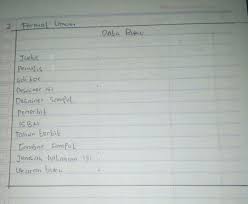 2. Format Umum
Data Buku
Judul
Penulis
Editor
Desainer isi
Desainer Sampul
Penerbit
ISBN
Tahun terbit
Gambar Sampul
Jumlah halaman isi
Ukuran buku